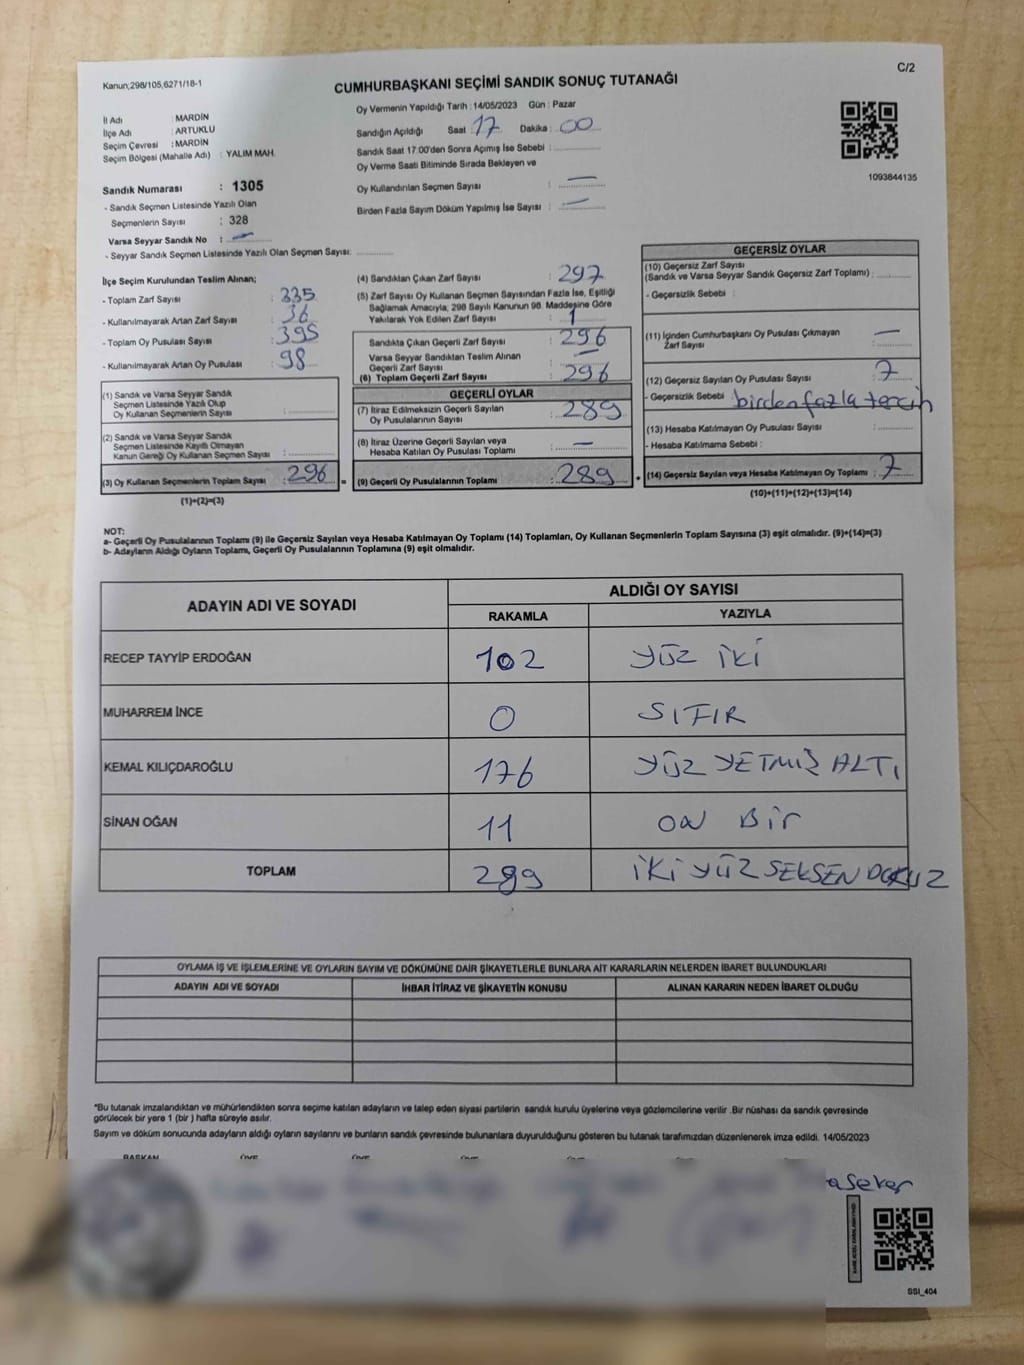 Kanun;298/105,6271/18-1
C/2
CUMHURBAŞKANI SEÇİMİ SANDIK SONUÇ TUTANAĞI
İl Adı : MARDİN
İlçe Adı : ARTUKLU
Seçim Çevresi : MARDİN
Seçim Bölgesi (Mahalle Adı) : YALIM MAH.
Sandık Numarası : 1305
- Sandık Seçmen Listesinde Yazılı Olan
Seçmenlerin Sayısı : 328
Varsa Seyyar Sandık No : —
- Seyyar Sandık Seçmen Listesinde Yazılı Olan Seçmen Sayısı:
Oy Vermenin Yapıldığı Tarih : 14/05/2023 Gün : Pazar
Sandığın Açıldığı Saat : 17 Dakika : 00
Sandık Saat 17:00'den Sonra Açımış İse Sebebi :
Oy Verme Saati Bitiminde Sırada Bekleyen ve
Oy Kullandırılan Seçmen Sayısı : —
Birden Fazla Sayım Döküm Yapılmış İse Sayısı : —
1093844135
İlçe Seçim Kurulundan Teslim Alınan;
- Toplam Zarf Sayısı : 335
- Kullanılmayarak Artan Zarf Sayısı : 36
- Toplam Oy Pusulası Sayısı : 395
- Kullanılmayarak Artan Oy Pusulası : 98
(1) Sandık ve Varsa Seyyar Sandık
Seçmen Listesinde Yazılı Olup
Oy Kullanan Seçmenlerin Sayısı :
(2) Sandık ve Varsa Seyyar Sandık
Seçmen Listesinde Kayıtlı Olmayan
Kanun Gereği Oy Kullanan Seçmen Sayısı :
(3) Oy Kullanan Seçmenlerin Toplam Sayısı : 296 =
(1)+(2)=(3)
(4) Sandıktan Çıkan Zarf Sayısı : 297
(5) Zarf Sayısı Oy Kullanan Seçmen Sayısından Fazla İse, Eşitliği
Sağlamak Amacıyla, 298 Sayılı Kanunun 98. Maddesine Göre
Yakılarak Yok Edilen Zarf Sayısı : 1
Sandıkta Çıkan Geçerli Zarf Sayısı : 296
Varsa Seyyar Sandıktan Teslim Alınan
Geçerli Zarf Sayısı : —
(6) Toplam Geçerli Zarf Sayısı : 296
GEÇERLİ OYLAR
(7) İtiraz Edilmeksizin Geçerli Sayılan
Oy Pusulalarının Sayısı : 289
(8) İtiraz Üzerine Geçerli Sayılan veya
Hesaba Katılan Oy Pusulası Toplamı : —
(9) Geçerli Oy Pusulalarının Toplamı : 289 +
GEÇERSİZ OYLAR
(10) Geçersiz Zarf Sayısı
(Sandık ve Varsa Seyyar Sandık Geçersiz Zarf Toplamı) :
- Geçersizlik Sebebi :
(11) İçinden Cumhurbaşkanı Oy Pusulası Çıkmayan
Zarf Sayısı : —
(12) Geçersiz Sayılan Oy Pusulası Sayısı : 7
- Geçersizlik Sebebi : birden fazla tercih
(13) Hesaba Katılmayan Oy Pusulası Sayısı :
- Hesaba Katılmama Sebebi :
(14) Geçersiz Sayılan veya Hesaba Katılmayan Oy Toplamı : 7
(10)+(11)+(12)+(13)=(14)
NOT:
a- Geçerli Oy Pusulalarının Toplamı (9) ile Geçersiz Sayılan veya Hesaba Katılmayan Oy Toplamı (14) Toplamları, Oy Kullanan Seçmenlerin Toplam Sayısına (3) eşit olmalıdır. (9)+(14)=(3)
b- Adayların Aldığı Oyların Toplamı, Geçerli Oy Pusulalarının Toplamına (9) eşit olmalıdır.
ADAYIN ADI VE SOYADI
ALDIĞI OY SAYISI
RAKAMLA YAZIYLA
RECEP TAYYİP ERDOĞAN 102 YÜZ İKİ
MUHARREM İNCE 0 SIFIR
KEMAL KILIÇDAROĞLU 176 YÜZ YETMİŞ ALTI
SİNAN OĞAN 11 ON BİR
TOPLAM 289 İKİ YÜZ SEKSEN DOKUZ
OYLAMA İŞ VE İŞLEMLERİNE VE OYLARIN SAYIM VE DÖKÜMÜNE DAİR ŞİKAYETLERLE BUNLARA AİT KARARLARIN NELERDEN İBARET BULUNDUKLARI
ADAYIN ADI VE SOYADI İHBAR İTİRAZ VE ŞİKAYETİN KONUSU ALINAN KARARIN NEDEN İBARET OLDUĞU
*Bu tutanak imzalandıktan ve mühürlendikten sonra seçime katılan adayların ve talep eden siyasi partilerin sandık kurulu üyelerine veya gözlemcilerine verilir .Bir nüshası da sandık çevresinde
görülecek bir yere 1 (bir ) hafta süreyle asılır.
Sayım ve döküm sonucunda adayların aldığı oyların sayılarını ve bunların sandık çevresinde bulunanlara duyurulduğunu gösteren bu tutanak tarafımızdan düzenlenerek imza edildi. 14/05/2023
BAŞKAN ÜYE ÜYE ÜYE ÜYE ÜYE
SSI_404